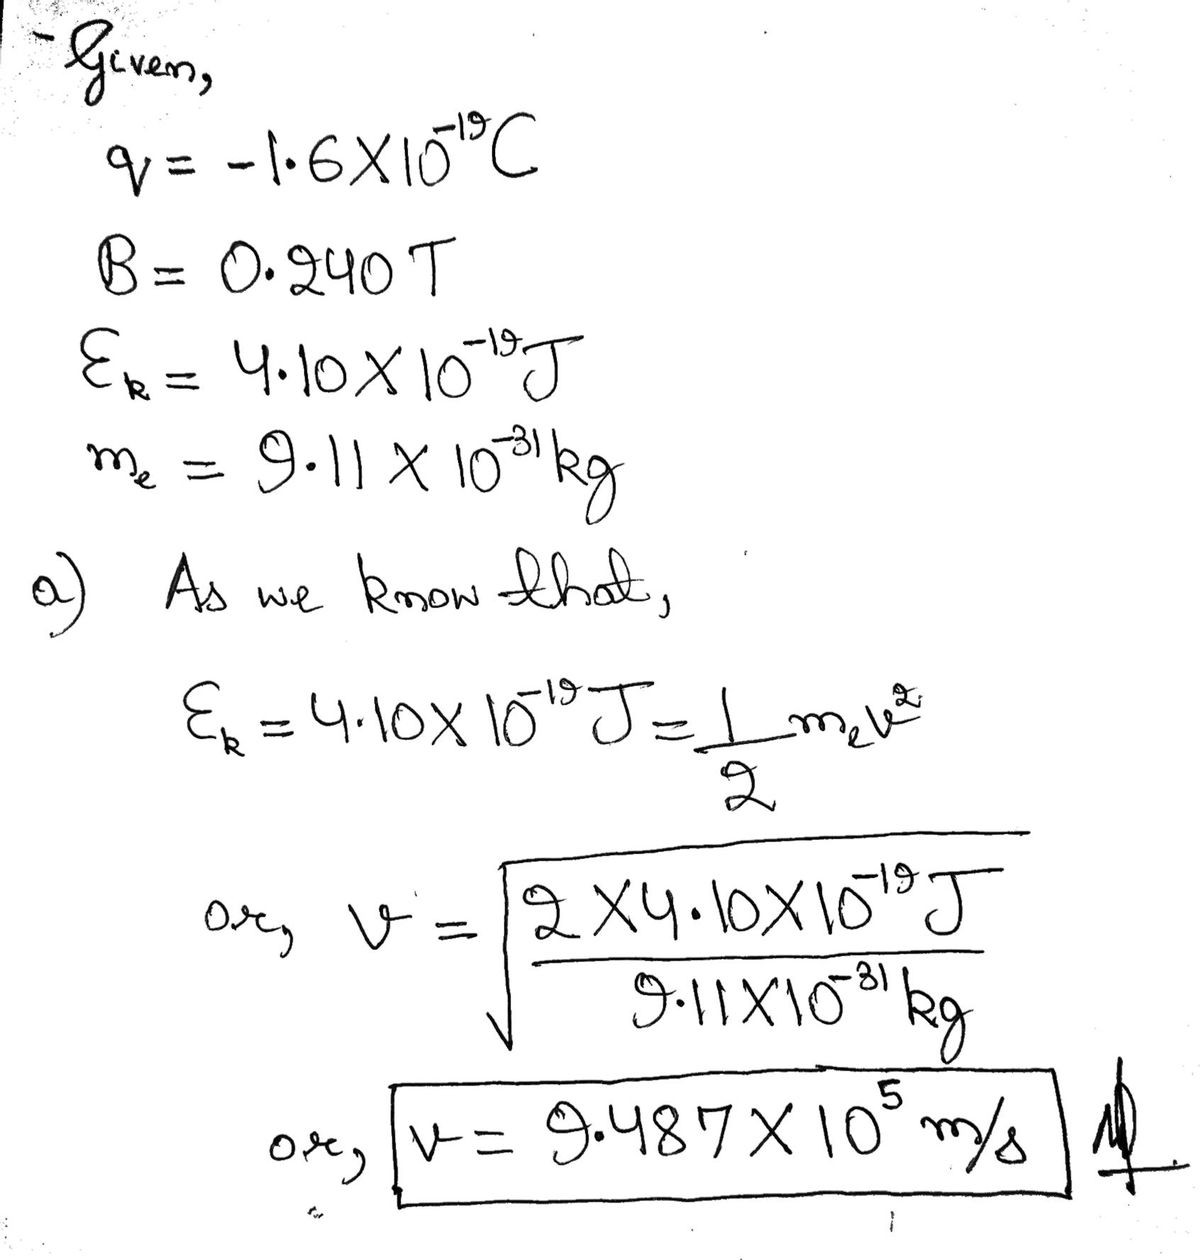 - Given,
q = -1.6X10^-19 C
B = 0.240 T
Ek = 4.10 X 10^-19 J
me = 9.11 X 10^-31 kg
a) As we know that,
Ek = 4.10X 10^-19 J = 1/2 me v^2
or, v = √(2 X4.10X10^-19 J / 9.11X10^-31 kg)
or, v = 9.487 X 10^5 m/s